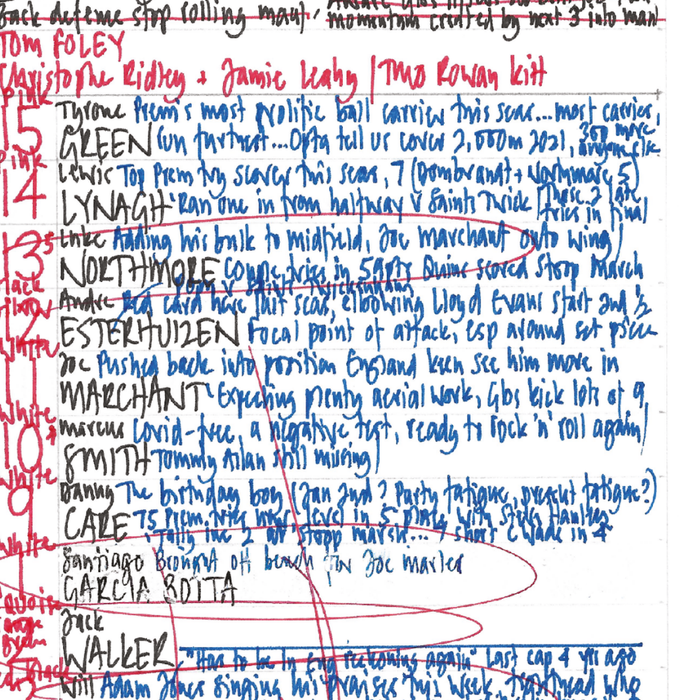 Gack defence stop rolling maul,
momentum created by next 3 into maul
TOM FOLEY
Christophe Ridley + Jamie Leahy | TMO Rowan Kitt
Pink
15 Tyrone Prem's most prolific ball carrier this seas... most carries,
GREEN run furthest... Opta tell us cover 2,000m 2021, 300 more anyone else
Pink
14 Lewis Top Prem try scorer this seas, 7 (Dombrandt + Northmore 5)
LYNAGH Ran one in from halfway v Saints Twick (Those 2 late tries in final
13 Luke Adding his bulk to midfield, Joe Marchant onto wing
NORTHMORE Couple tries in 5 Quins scored Stoop March
Black
12 Andre Red card here last seas, elbowing Lloyd Evans start 2nd ½
ESTERHUIZEN Focal point of attack, esp around set piece
White
11 Joe Pushed back into position England keen see him more in
MARCHANT Expecting plenty aerial work, Glos kick lots of 9
White
10 Marcus Covid-free, a negative test, ready to rock 'n' roll again
SMITH Tommy Allan still missing
White
9 Danny The birthday boy (Jan 2nd? Party fatigue, present fatigue?)
CARE 75 Prem tries level in 5 place with
White
1 Santiago Brought off bench for Joe Marler
GARCIA BOTTA
Jack
WALKER "Has to be in Eng reckoning again" last cap 4 yrs ago
Will Adam Jones singing his praises this week, tighthead who